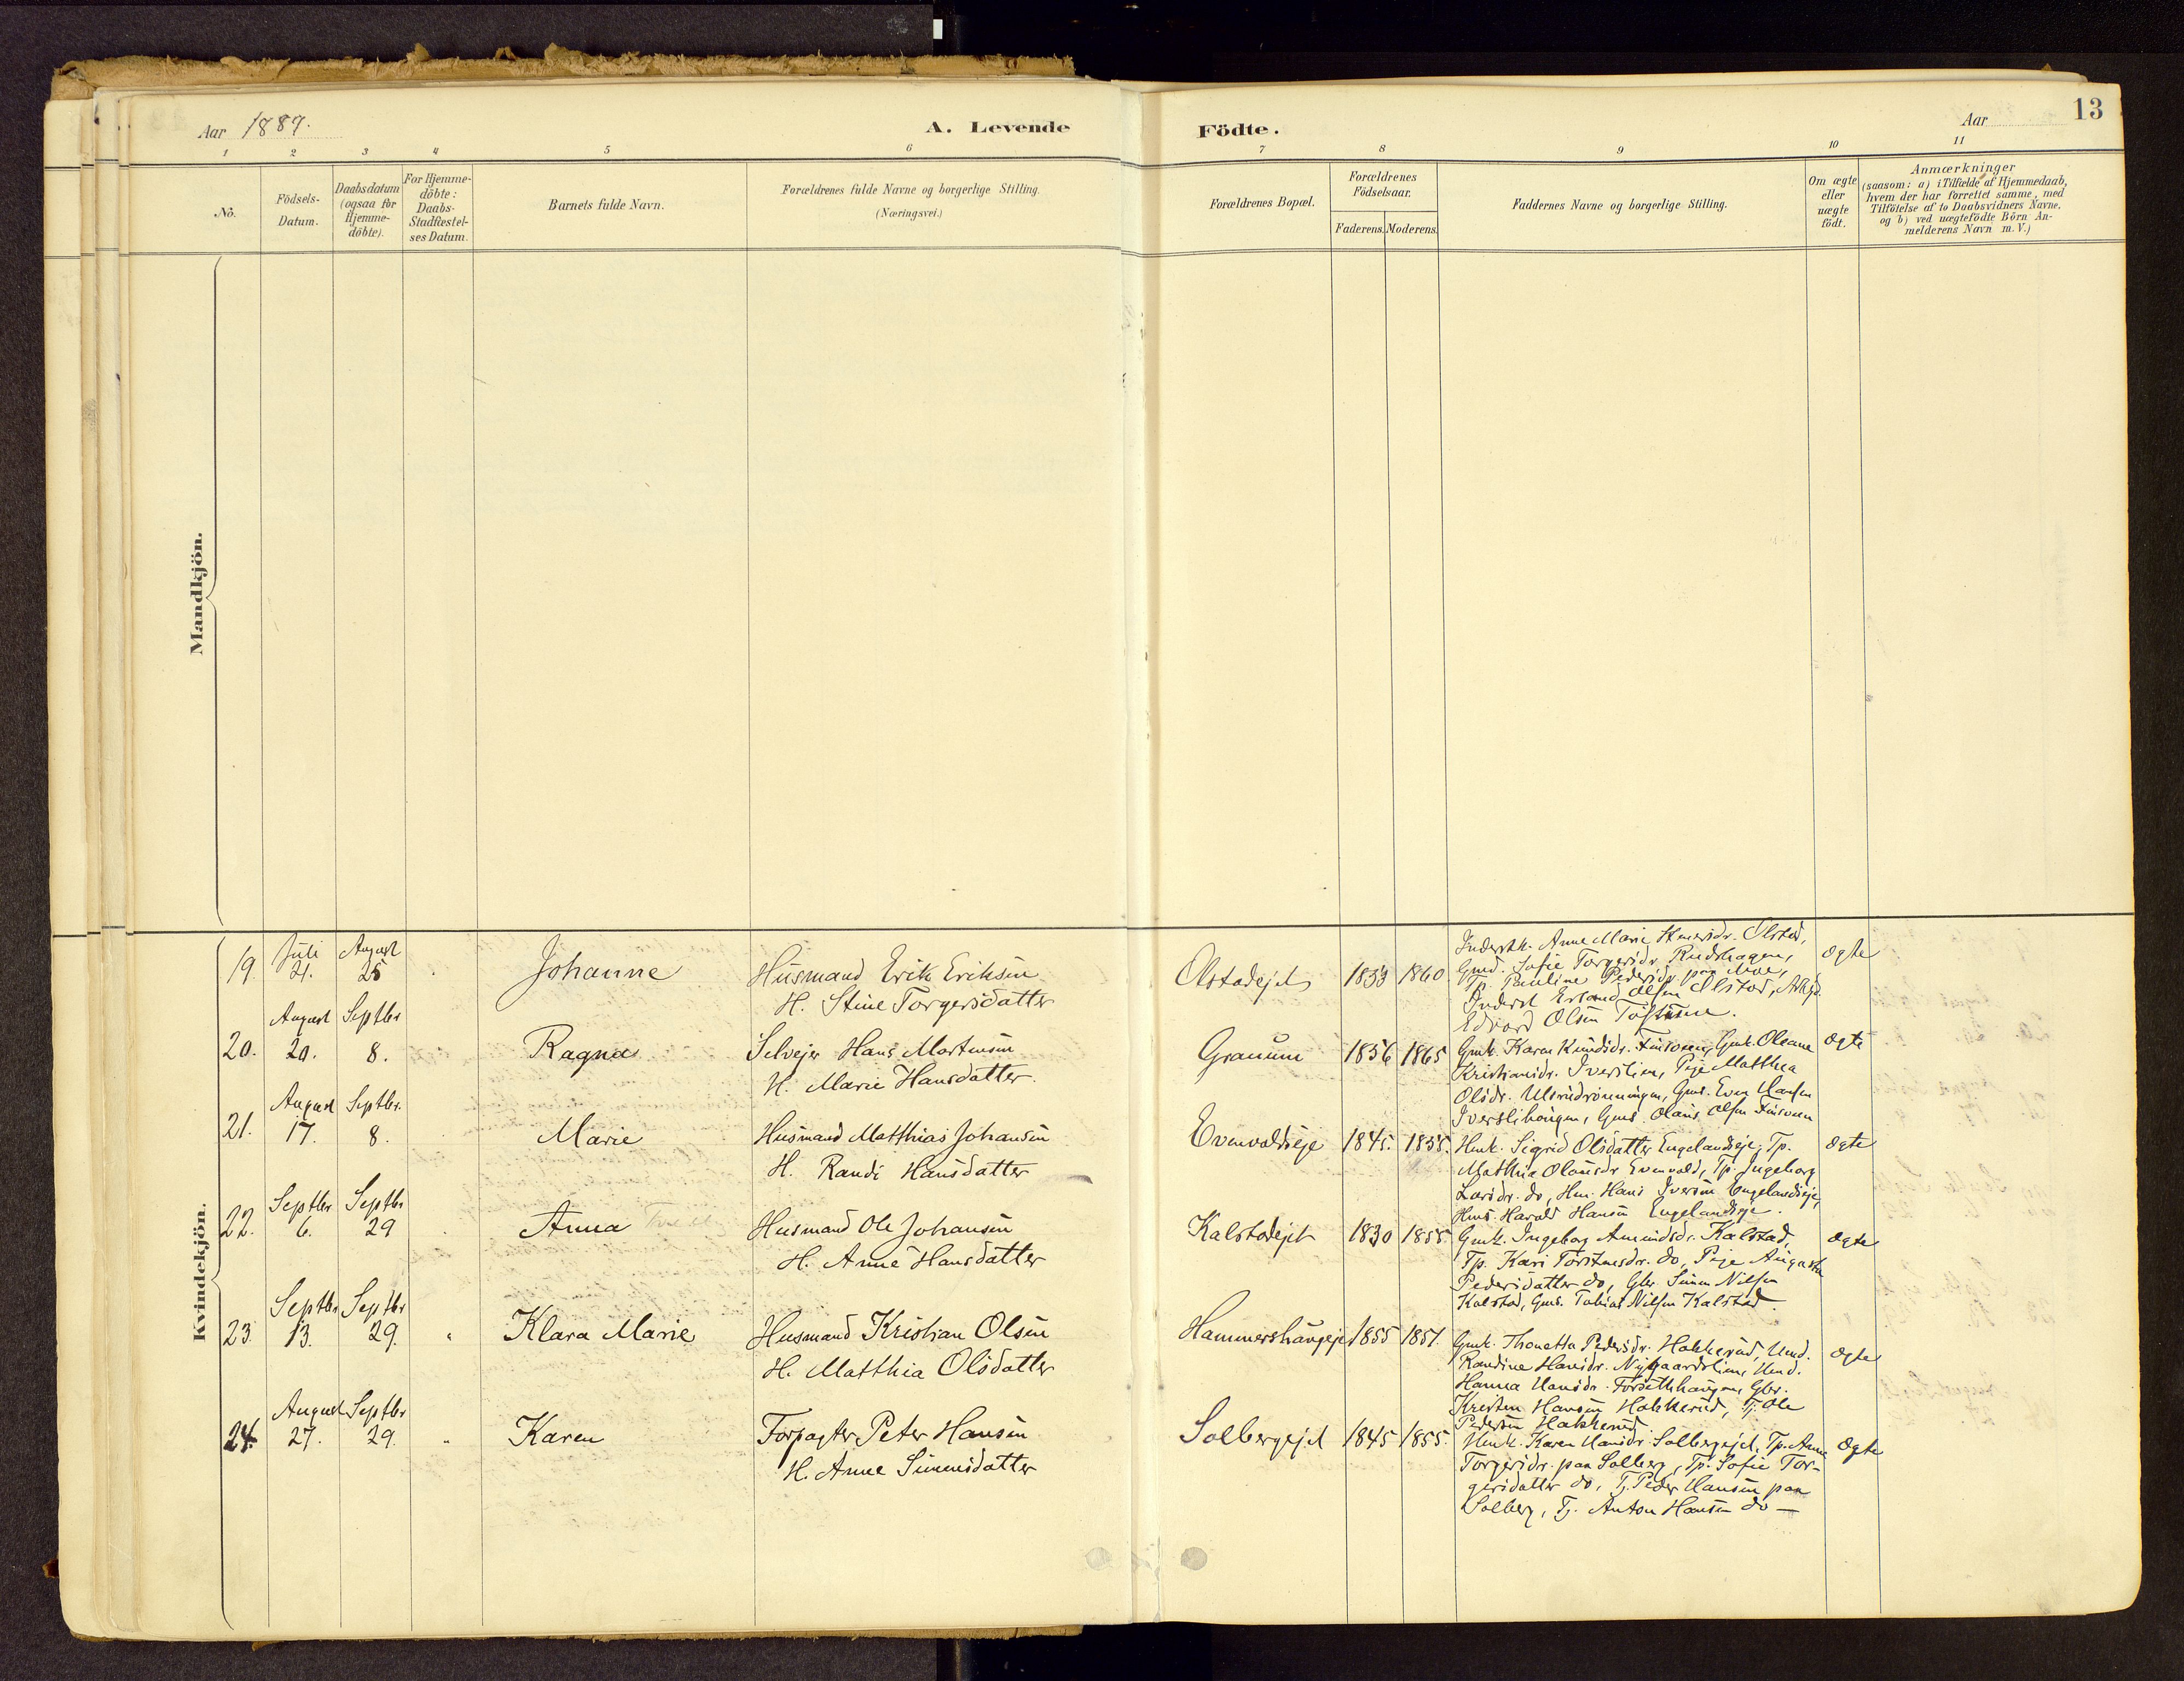 Aar 1889.
A. Levende
Födte.
Aar
13
1 2 3 4 5 6 7 8 9 10 11
No.
Födsels-
Datum.
Daabsdatum
(ogsaa for
Hjemme-
döbte).
For Hjemme-
döbte:
Daabs-
Stadfæstel-
ses Datum.
Barnets fulde Navn.
Forældrenes fulde Navne og borgerlige Stilling.
(Næringsvei.)
Forældrenes Bopæl.
Forældrenes
Födselsaar.
Faderens. Moderens.
Faddernes Navne og borgerlige Stilling.
Om ægte
eller
uægte
födt.
Anmærkninger
(saasom: a) i Tilfælde af Hjemmedaab,
hvem der har forrettet samme, med
Tilföielse af to Daabsvidners Navne,
og b) ved uægtefödte Börn An-
melderens Navn m. V.)
Mandkjön.
Kvindekjön.
19. Juli 21. August 25 Johanne
Husmand Erik Eriksen
H. Stine Torgersdatter
Olstadejet 1833 1860.
Inderstk. Anne Marie Olstad,
Gmd. Sofie Torgersdr. Rudshagen,
Tp. Pauline Pedersdr. paa Moe,
Inderst Erland Olsen Olstad, Arbjd.
Edvard Olsen
ægte
20. August 20. Septbr 8. Ragna
Selvejer Hans Mortensen
H. Marie Hansdatter.
Granum 1856 1865
Gmk. Karen Knudsdr. Gmk. Oleane
Kristiansdr. Iverslien, Pige Matthea
Olsdr. Gms. Even Hansen
Iverslihaugen, Gms. Olaus Olsen
ægte
21. August 17. Septbr. 8. Marie
Husmand Matthias Johansen
H. Randi Hansdatter
Evenvoldseje 1845. 1835.
Hmk. Sigrid Olsdatter Engelandseje, Tp.
Mathia Olausdr Evenvold, Tp. Ingeborg
Larsdr. do, Hm. Hans Iversen Engelandseje,
Hms. Harald Hansen Engelandseje.
ægte
22. Septbr 6. Septbr 29 Anna
Husmand Ole Johansen
H. Anne Hansdatter
Kalstadejet 1830 1855.
Gmk. Ingeborg Amundsdr. Kalstad,
Tp. Kari Torstensdr. do, Pige Augusta
Pedersdatter do, Gbr. Simen Nilsen
Kalstad, Gms. Tobias Nilsen Kalstad.
ægte
23. Septbr 13. Septbr 29. " Klara Marie
Husmand Kristian Olsen
H. Matthia Olsdatter
Hammershaugeje 1855 1857.
Gmk. Thonetta Pedersdr. Hakkerud, Umd.
Randine Hansdr. Nygaardslien, Umd.
Hanna Hansdr. Forsethhaugen, Gbr.
Kristen Hansen Hakkerud, Tj. Ole
Pedersen Hakkerud
ægte
24. August 27. Septbr 29. " Karen
Forpagter Peter Hansen
H. Anne Simensdatter
Solbergejet 1845 1855.
Hmk. Karen Hansdr. Solbergejet, Tp. Anne
Torgersdr. paa Solberg, Tp. Sofie Tor-
gersdatter do, Tj. Peder Hansen paa
Solberg, Tj. Anton Hansen do —
ægte